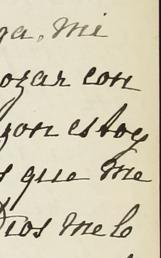 ga, mi
ozar con
zon estoy
s que me
Dios me lo